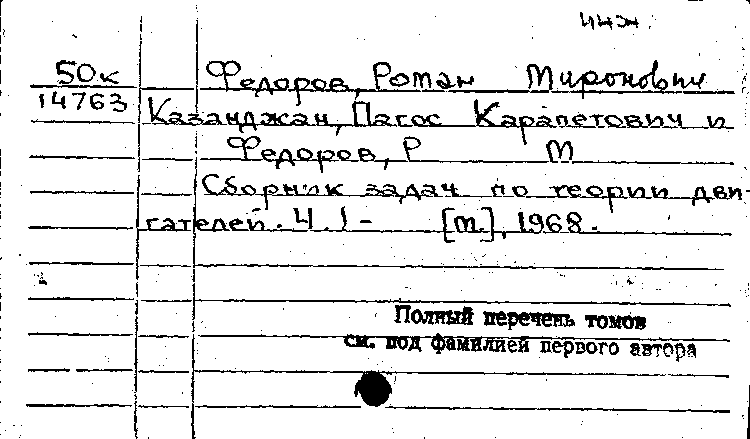 инж.
50к Федоров, Роман Миронович
14763 Казанджан, Пагос Карапетович и
Федоров, Р М
Сборник задач по теории дви-
гателей. Ч. 1- [М.], 1968.
Полный перечень томов
см. под фамилией первого автора